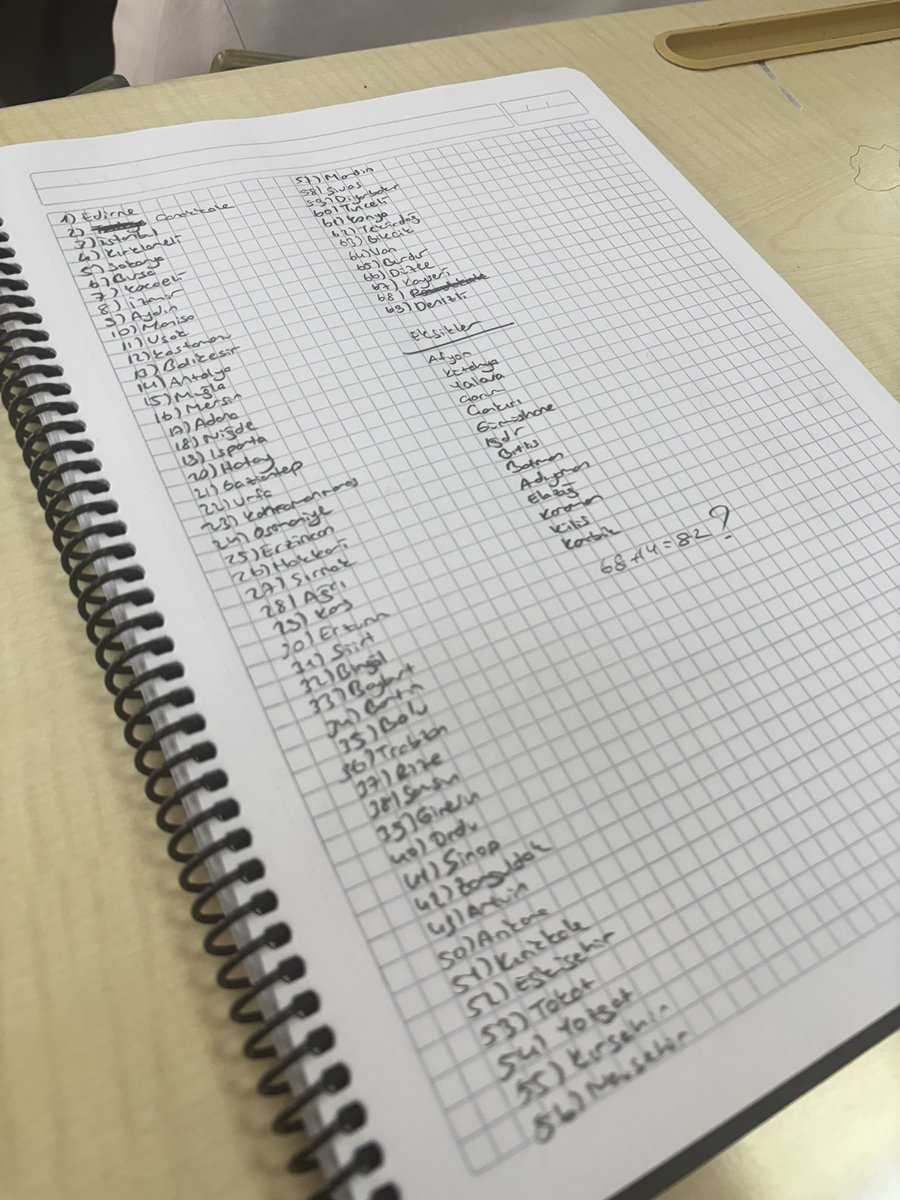 1) Edirne
2) Çanakkale
3) İstanbul
4) Kırklareli
5) Sakarya
6) Bursa
7) Kocaeli
8) İzmir
9) Aydın
10) Manisa
11) Uşak
12) Kastamonu
13) Balıkesir
14) Antalya
15) Muğla
16) Mersin
17) Adana
18) Niğde
19) Isparta
20) Hatay
21) Gaziantep
22) Urfa
23) Kahramanmaraş
24) Osmaniye
25) Erzincan
26) Hakkari
27) Şırnak
28) Ağrı
29) Kars
30) Erzurum
31) Siirt
32) Bingöl
33) Bayburt
34) Bartın
35) Bolu
36) Trabzon
37) Rize
38) Samsun
39) Giresun
40) Ordu
41) Sinop
42) Zonguldak
43) Artvin
50) Ankara
51) Kırıkkale
52) Eskişehir
53) Tokat
54) Yozgat
55) Kırşehir
56) Nevşehir
57) Mardin
58) Sivas
59) Diyarbakır
60) Tunceli
61) Konya
62) Tekirdağ
63) Bilecik
64) Van
65) Burdur
66) Düzce
67) Kayseri
68)
69) Denizli
Eksikler
Afyon
Kütahya
Yalova
Çorum
Çankırı
Gümüşhane
Iğdır
Bitlis
Batman
Adıyaman
Elazığ
Karaman
Kilis
Karabük
68+14=82?